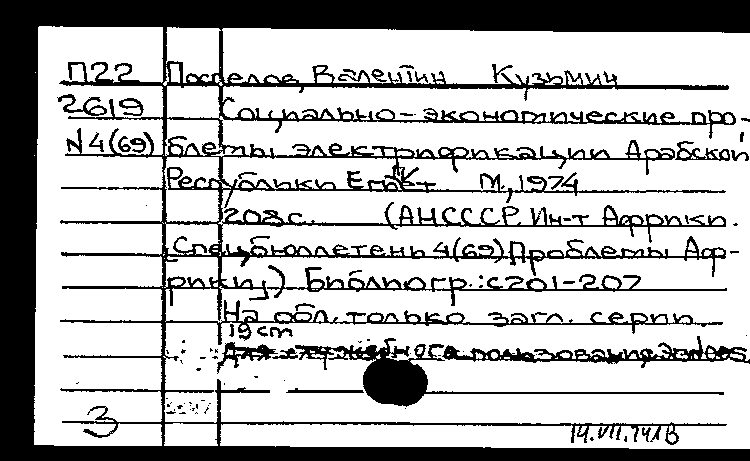 П22 Поспелов, Валентин Кузьмич
2619 Социально-экономические про-
N4(69) блемы электрификации Арабской
Республики Египет М., 1974
208с. (АНСССР. Ин-т Африки.
Спец.бюллетень 4(69) Проблемы Аф-
рики,) Библиогр.: с201-207
На обл. только загл. серии.
19 cm
Для служебного пользования.
3 14.VII.74